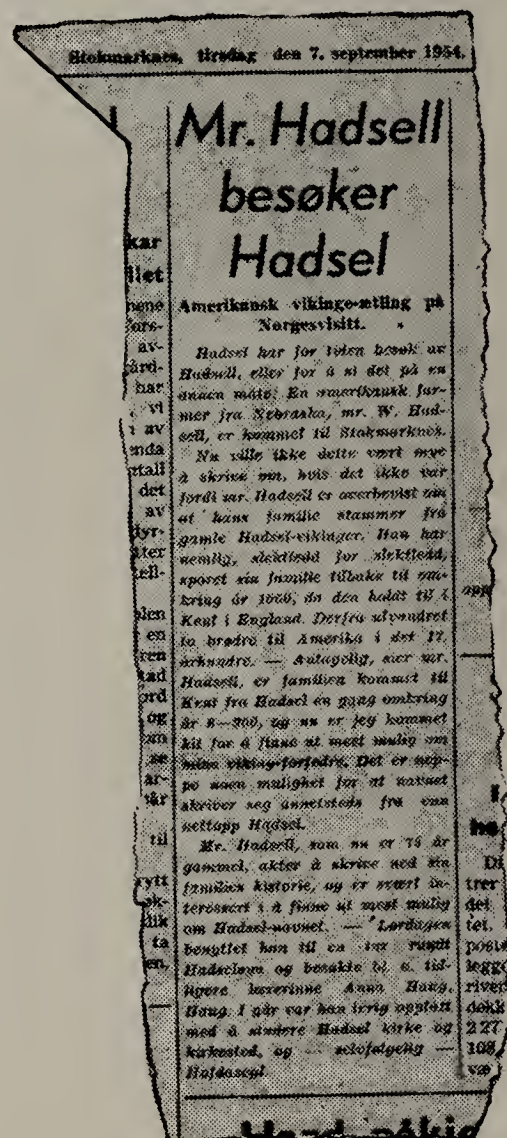 Stokmarknes, tirsdag den 7. september 1954.
Mr. Hadsell
besøker
Hadsel
Amerikansk vikinge-ætling på
Norgesvisitt.
Hadsel har for tiden besøk av
Hadsell, eller for å si det på en
annen måte: En amerikansk far-
mer fra Nebraska, mr. W. Had-
sell, er kommet til Stokmarknes.
Nu ville ikke dette vært mye
å skrive om, hvis det ikke var
fordi mr. Hadsell er overbevist om
at hans familie stammer fra
gamle Hadsel-vikinger. Han har
nemlig, slektledd for slektledd,
sporet sin familie tilbake til om-
kring år 1060, da den holdt til i
Kent i England. Derfra utvandret
to brødre til Amerika i det 17.
århundre. — Antagelig, sier mr.
Hadsell, er familien kommet til
Kent fra Hadsel en gang omkring
år 8—900, og nu er jeg kommet
hit for å finne ut mest mulig om
mine viking-forfedre. Det er nep-
pe noen mulighet for at navnet
skriver seg annetsteds fra enn
nettopp Hadsel.
Mr. Hadsell, som nu er 75 år
gammel, akter å skrive ned sin
families historie, og er svært in-
teressert i å finne ut mest mulig
om Hadsel-navnet. — Lørdagen
benyttet han til en tur rundt
Hadseløya og besøkte bl. a. tid-
ligere lærerinne Anna Haug,
Haug. I går var han ivrig opptatt
med å studere Hadsel kirke og
kirkested, og — selvfølgelig —
kar
llet
pene
fors-
av-
gård-
har
vi
av
enda
ntall
det
av
dyr-
tter
tell-
en
og
se
til
rytt
ta
en,
app
he
Di
trer
det
tet,
poste
legge
river
dekk
227
108,